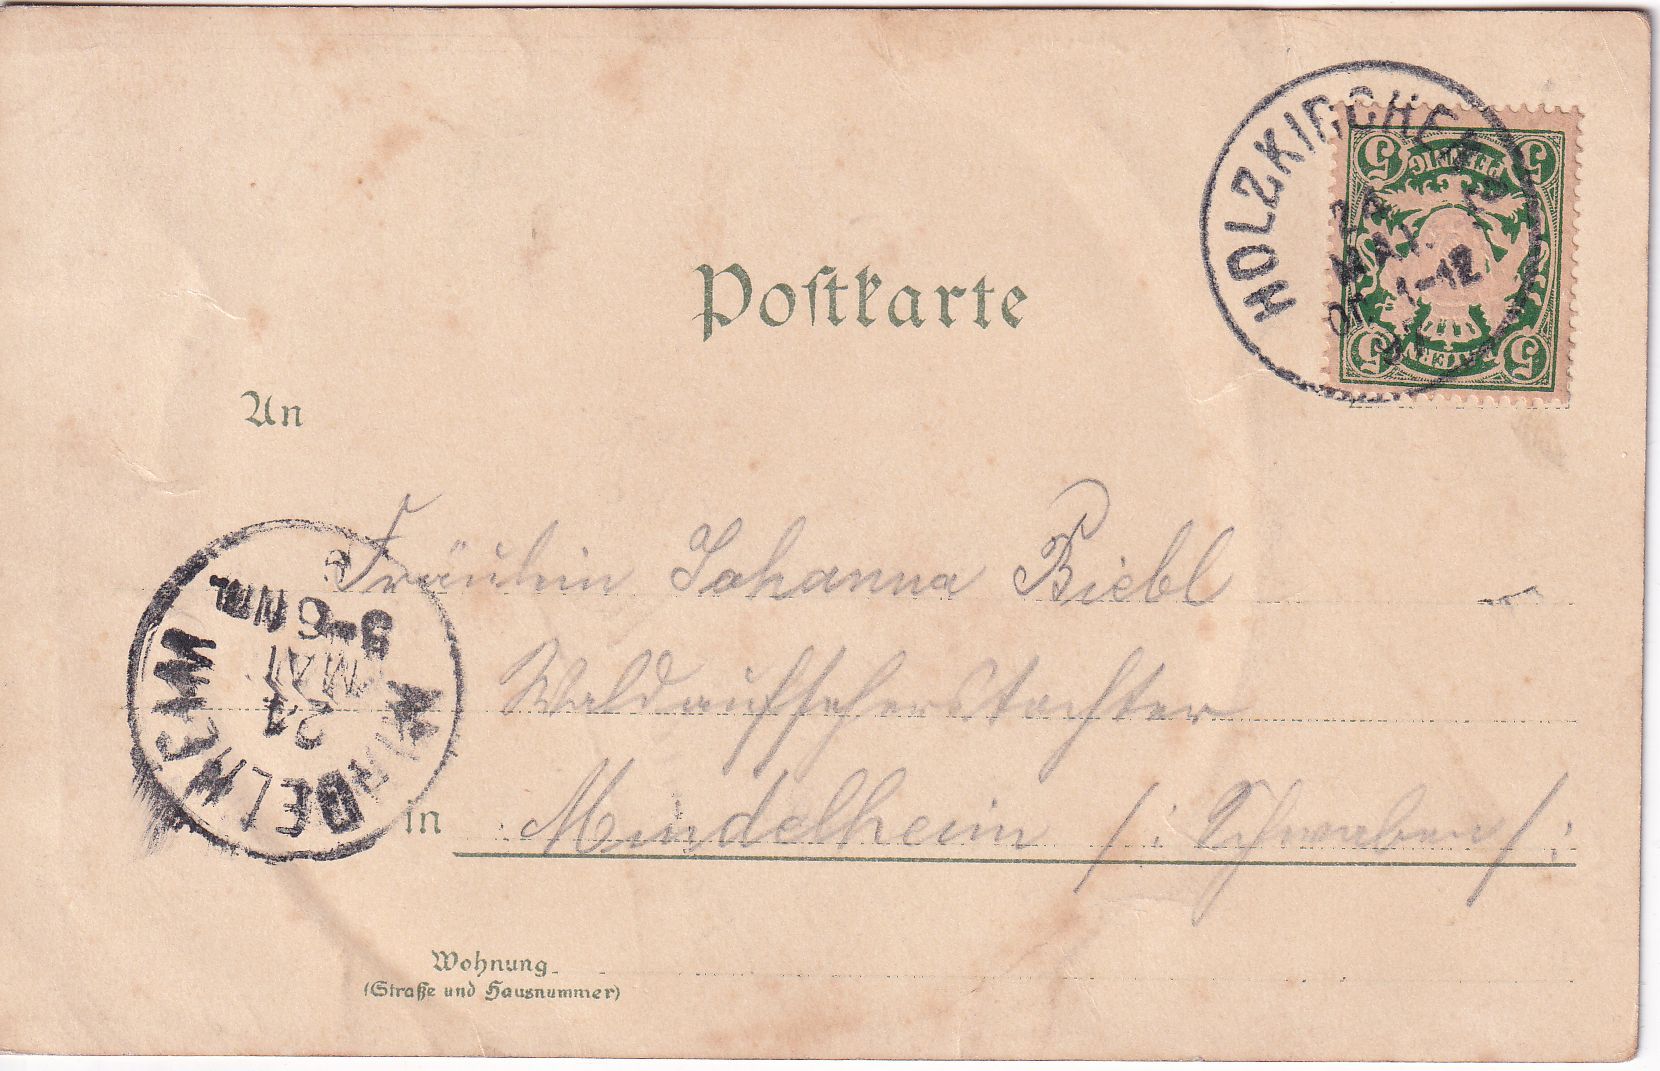 Postkarte
HOLZKIRCHEN
MAI.
5 PFENNIG 5
5 BAYERN 5
An
Fräulein Johanna Biebl
Waldaufseherstochter
in Mindelheim /: Schwaben /:
MINDELHEIM
21
MAI
5-6 NM.
Wohnung
(Straße und Hausnummer)